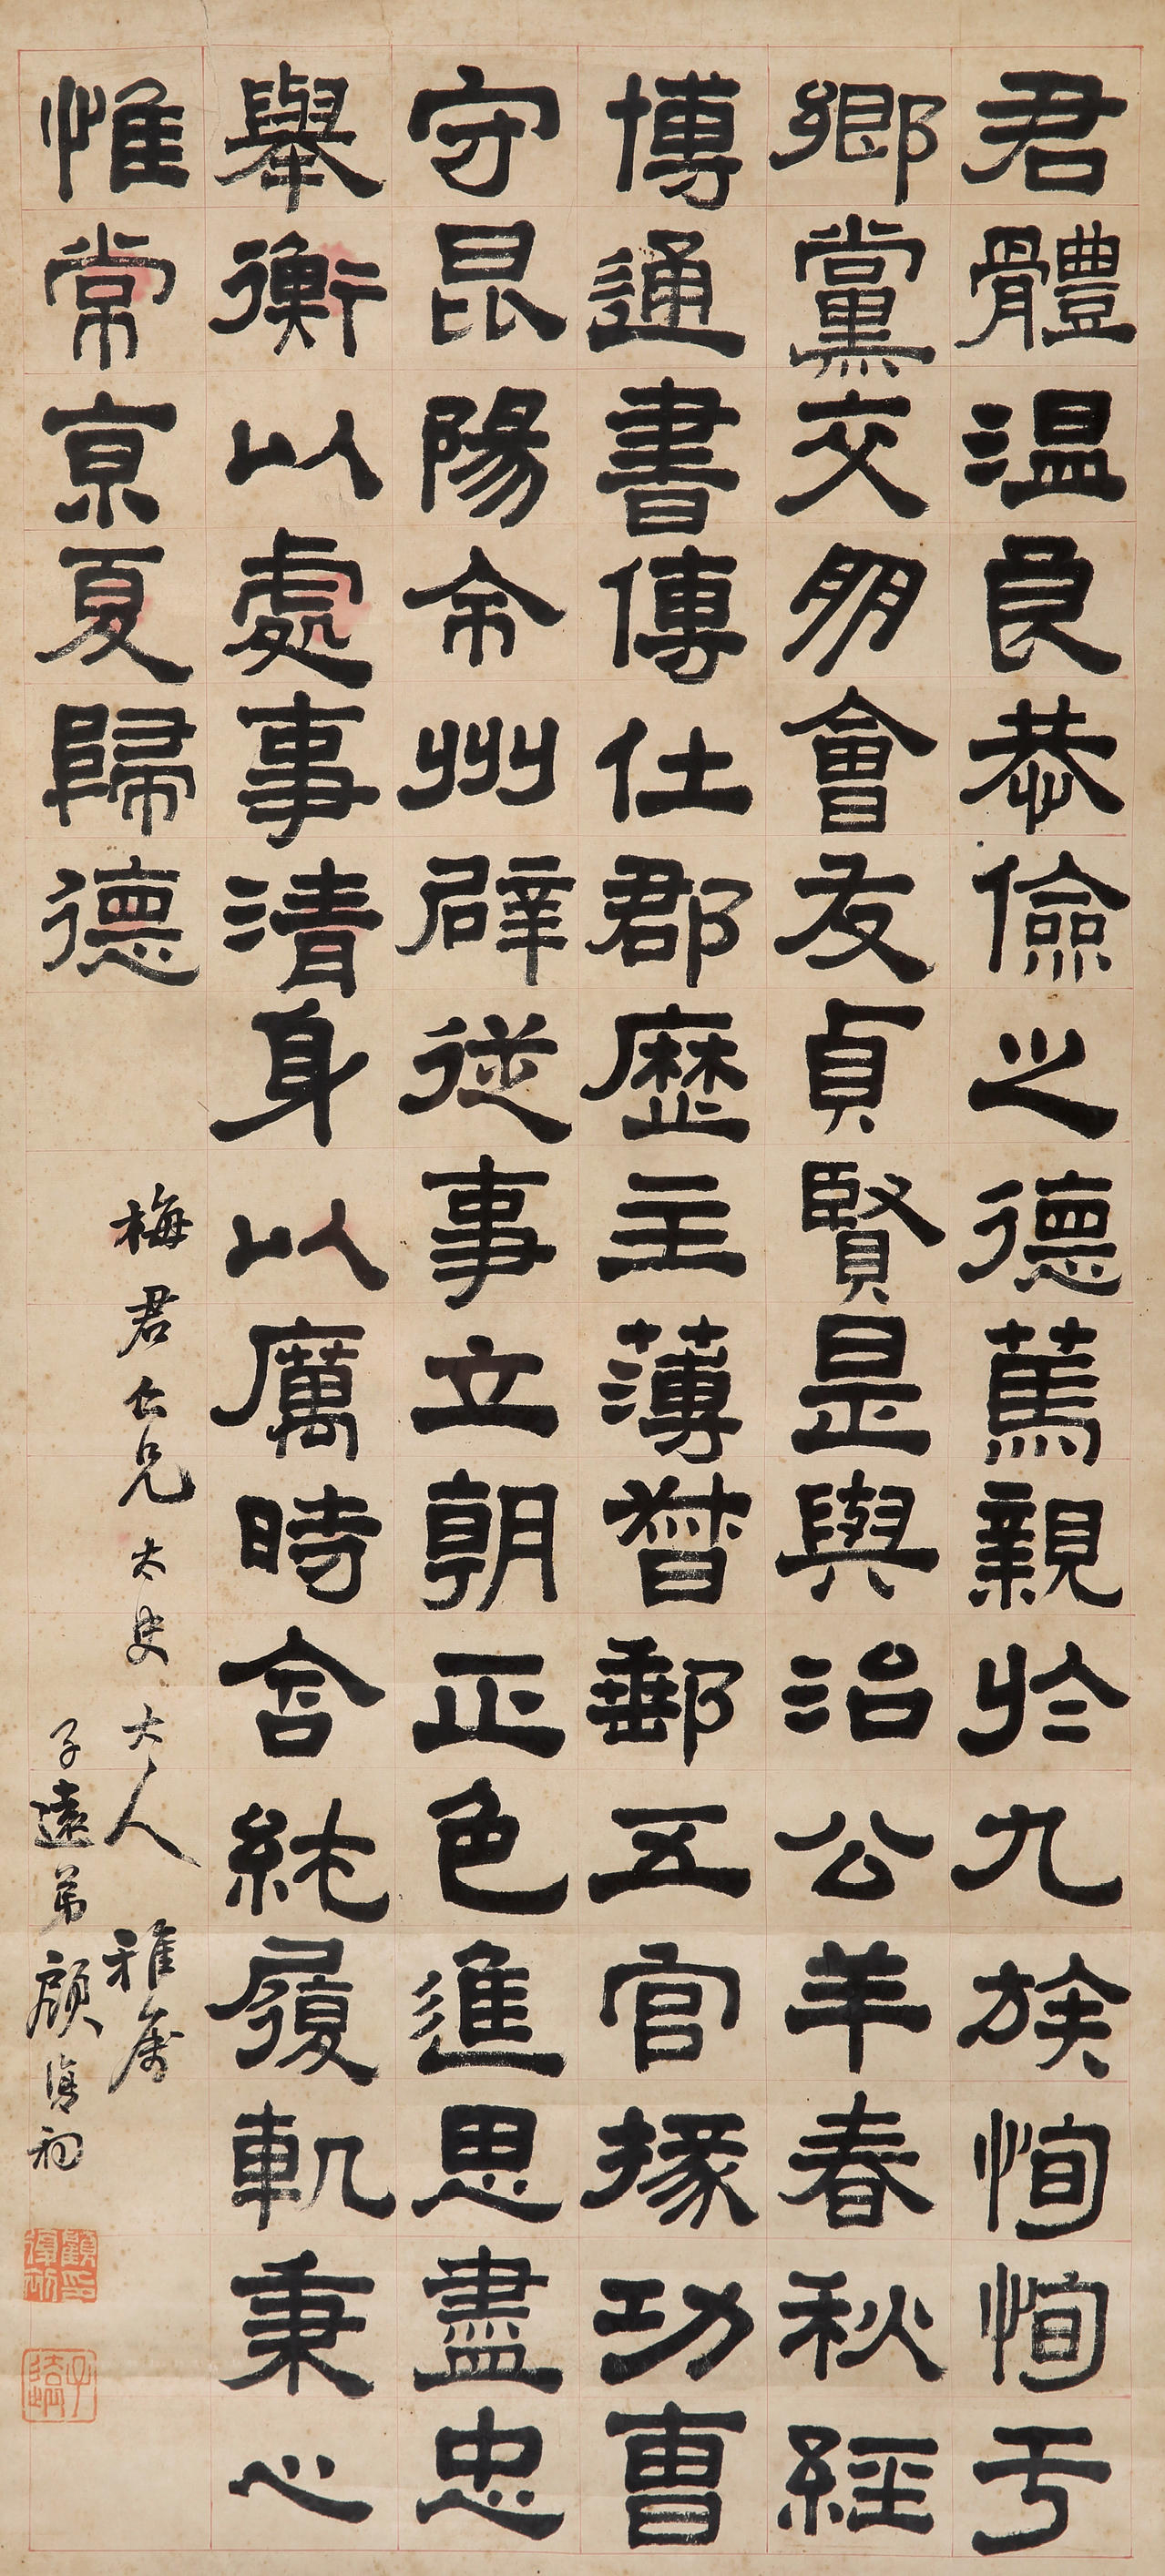 君體温良恭儉之德篤親於九族恂恂于
鄉黨交朋會友貞賢是與治公羊春秋經
博通書傳仕郡歷主薄督郵五官掾功曹
守昆陽令州辟從事立朝正色進思盡忠
舉衡以處事清身以厲時含純履軌秉心
惟常京夏歸德
梅君仁兄太史大人雅屬
子遠弟顧復初
顧復初印
子遠